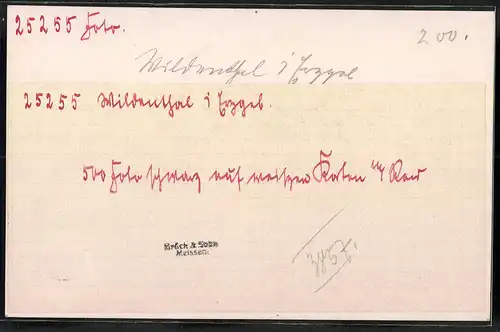 25255 Foto.
200.
Wildenthal i Erzgeb
25255 Wildenthal i Erzgeb.
500 Foto schwarz auf weißen Karten
Brück & Sohn
Meissen.